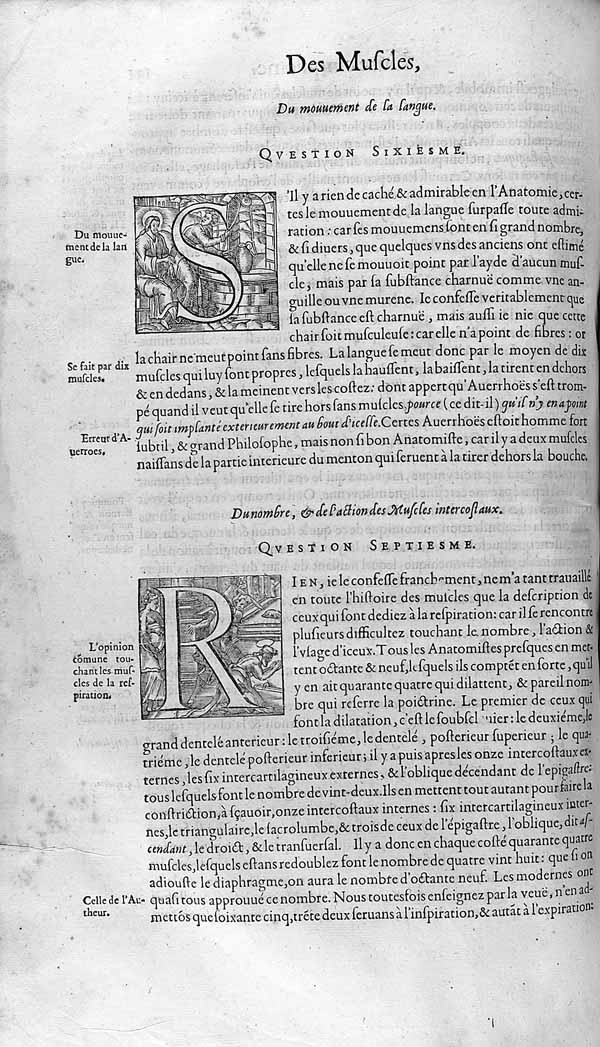 Des Muſcles,
Du mouuement de la langue.
QVESTION SIXIESME.
Du mouue-
ment de la lan
gue.
S'Il y a rien de caché & admirable en l'Anatomie, cer-
tes le mouuement de la langue ſurpaſſe toute admi-
ration : car ſes mouuemens ſont en ſi grand nombre,
& ſi diuers, que quelques vns des anciens ont eſtimé
qu'elle ne ſe mouuoit point par l'ayde d'aucun muſ-
cle, mais par ſa ſubſtance charnuë comme vne an-
guille ou vne murene. Ie confeſſe veritablement que
ſa ſubſtance eſt charnuë, mais auſſi ie nie que cette
chair ſoit muſculeuſe : car elle n'a point de fibres : or
Se fait par dix
muſcles.
la chair ne meut point ſans fibres. La langue ſe meut donc par le moyen de dix
muſcles qui luy ſont propres, leſquels la hauſſent, la baiſſent, la tirent en dehors
& en dedans, & la meinent vers les coſtez : dont appert qu'Auerrhoës s'eſt trom-
pé quand il veut qu'elle ſe tire hors ſans muſcles, pource (ce dit-il) qu'il n'y en a point
qui ſoit implanté exterieurement au bout d'icelle. Certes Auerrhoës eſtoit homme fort
Erreur d'A-
uerroes.
ſubtil, & grand Philoſophe, mais non ſi bon Anatomiſte, car il y a deux muſcles
naiſſans de la partie interieure du menton qui ſeruent à la tirer dehors la bouche.
Du nombre, & de l'action des Muſcles intercoſtaux.
QVESTION SEPTIESME.
RIEN, ie le confeſſe franchement, ne m'a tant trauaillé
en toute l'hiſtoire des muſcles que la deſcription de
ceux qui ſont dediez à la reſpiration : car il ſe rencontre
pluſieurs difficultez touchant le nombre, l'action &
L'opinion
cõmune tou-
chant les muſ-
cles de la reſ-
piration.
l'vſage d'iceux. Tous les Anatomiſtes preſques en met-
tent octante & neuf, leſquels ils comptẽt en ſorte, qu'il
y en ait quarante quatre qui dilattent, & pareil nom-
bre qui reſerre la poictrine. Le premier de ceux qui
font la dilatation, c'eſt le ſoubſcl uier : le deuxiéme, le
grand dentelé anterieur : le troiſiéme, le dentelé, poſterieur ſuperieur ; le qua-
triéme, le dentelé poſterieur inferieur ; il y a puis apres les onze intercoſtaux ex-
ternes, les ſix intercartilagineux externes, & l'oblique décendant de l'epigaſtre :
tous leſquels font le nombre de vint-deux. Ils en mettent tout autant pour faire la
conſtriction, à ſçauoir, onze intercoſtaux internes : ſix intercartilagineux inter-
nes, le triangulaire, le ſacrolumbe, & trois de ceux de l'épigaſtre, l'oblique, dit aſ-
cendant, le droict, & le tranſuerſal. Il y a donc en chaque coſté quarante quatre
muſcles, leſquels eſtans redoublez font le nombre de quatre vint huit : que ſi on
adiouſte le diaphragme, on aura le nombre d'octante neuf. Les modernes ont
Celle de l'Au-
theur.
quaſi tous approuué ce nombre. Nous toutesfois enſeignez par la veuë, n'en ad-
mettõs que ſoixante cinq, trẽte deux ſeruans à l'inſpiration, & autãt à l'expiration: